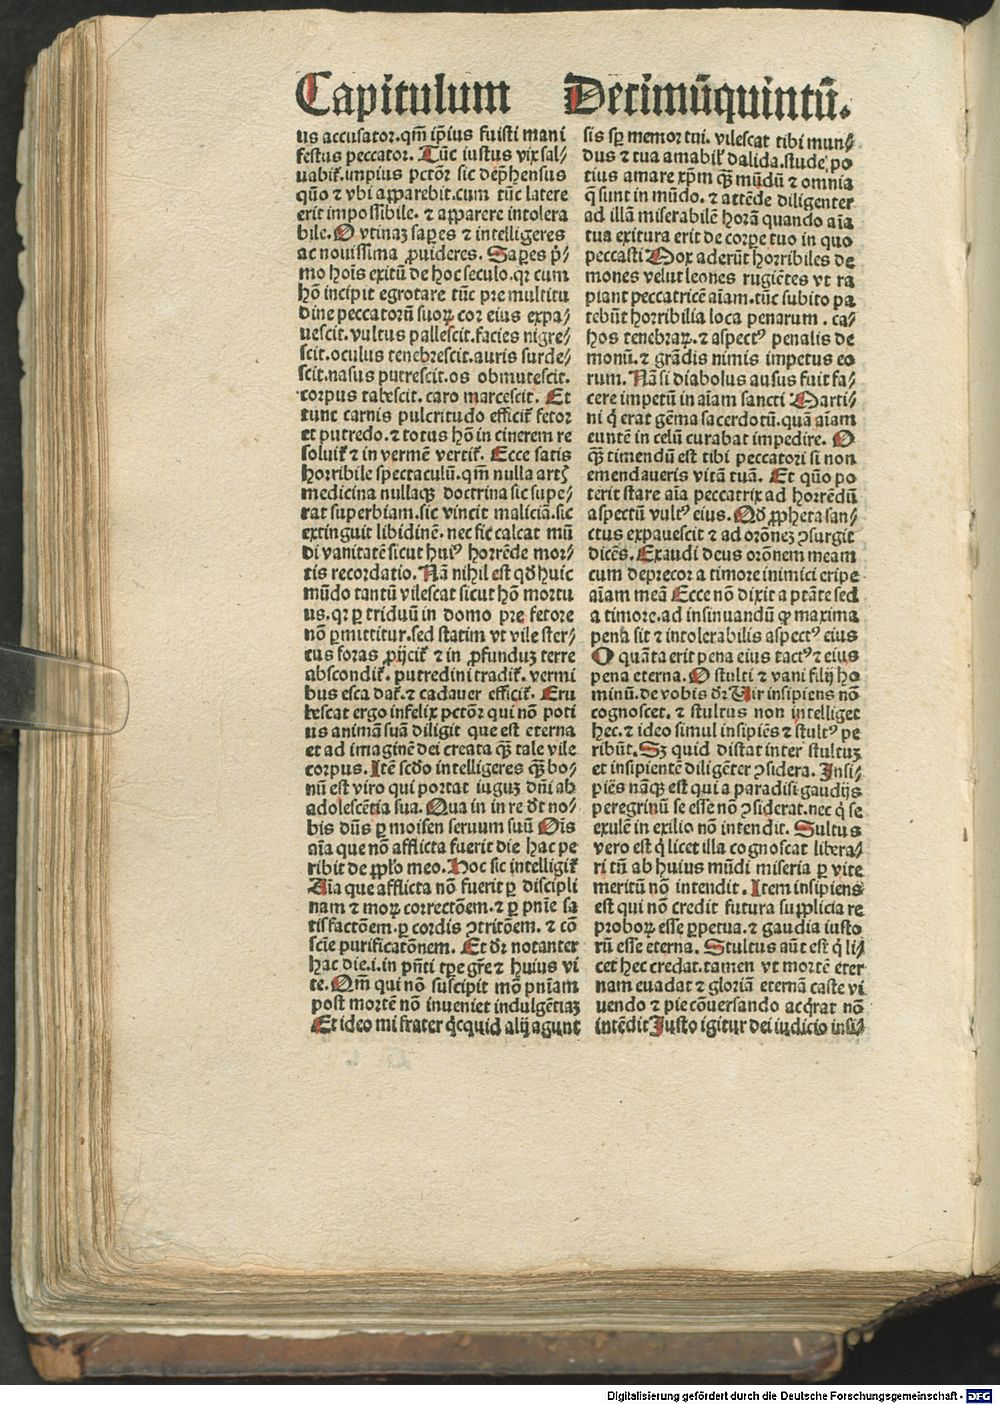 Capitulum Decimūquintū.
us accusator.qm̄ ip̄ius fuisti mani
festus peccator. Tūc iustus vix sal⸗
vabit̄.impius pctōr sic dep̄hensus
quō ⁊ vbi apparebit.cum tūc latere
erit impossibile. ⁊ apparere intolera
bile. O vtinaꝫ saperes ⁊ intelligeres
ac nouissima ꝓuideres. Saperes p̄i⸗
mo hoīs exitū de hoc seculo.qꝛ cum
hō incipit egrotare tūc pre multitu
dine peccatorū suoꝝ cor eius expa⸗
uescit.vultus pallescit.facies nigre⸗
scit.oculus tenebrescit.auris surde⸗
scit.nasus putrescit.os obmutescit.
corpus tabescit. caro marcescit. Et
tunc carnis pulcritudo efficit̄ fetor
et putredo.⁊ totus hō in cinerem re
soluit̄ ⁊ in vermē vertit̄. Ecce satis
horribile spectaculū.qm̄ nulla artꝭ
medicina nullaqꝫ doctrina sic supe⸗
rat superbiam.sic vincit maliciā.sic
extinguit libidinē. nec sic calcat mū
di vanitatē sicut huiꝰ horrēde mor⸗
tis recordatio. Nā nihil est qđ huic
mūdo tantū vilescat sicut hō mortu
us.qꝛ ꝑ triduū in domo pre fetore
nō ꝑmittitur.sed statim vt vile ster⸗
cus foras ꝓijcit̄ ⁊ in ꝓfunduꝫ terre
abscondit̄. putredini tradit̄. vermi
bus esca dat̄.⁊ cadauer efficit̄. Eru
bescat ergo infelix pctōr qui nō poti
us animā suā diligit que est eterna
et ad imaginē dei creata qꝫ̄ tale vile
corpus. Itē scđo intelligeres qꝫ̄ bo⸗
nū est viro qui portat iuguꝫ dn̄i ab
adolescētia sua. Qua in in re dr̄t no⸗
bis dn̄s ꝑ moisen seruum suū Oīs
aīa que nō afflicta fuerit die hac pe
ribit de pplo meo. Hoc sic intelligit̄
Aīa que afflicta nō fuerit ꝑ discipli
nam ⁊ moꝝ correctōem.⁊ ꝑ pn̄ie sa
tisfactōem.ꝑ cordis ↄtritōem. ⁊ cō
scīe purificatōnem. Et dr̄ notanter
hac die.i.in pn̄ti tꝑe gr̄e ⁊ huius vi
te. Qm̄ qui nō suscipit mō pn̄iam
post mortē nō inueniet indulgētiaꝫ
Et ideo mi frater qͥcquid alij agunt
sis sꝑ memor tui. vilescat tibi mun⸗
dus ⁊ tua amabil̄ dalida.stude po
tius amare xp̄m qꝫ̄ mūdū ⁊ omnia
q̄ sunt in mūdo. ⁊ attēde diligenter
ad illā miserabilē horā quando aīa
tua exitura erit de corpe tuo in quo
peccasti Mox aderūt horribiles de
mones velut leones rugiētes vt ra
piant peccatricē aīam.tūc subito pa
tebūt horribilia loca penarum . ca⸗
hos tenebraꝝ. ⁊ aspectꝰ penalis de
monū. ⁊ grādis nimis impetus eo
rum. Nā si diabolus ausus fuit fa⸗
cere impetū in aīam sancti Marti⸗
ni q̇ erat gēma sacerdotū.quā aīam
euntē in celū curabat impedire. O
qꝫ̄ timendū est tibi peccatori si non
emendaueris vitā tuā. Et quō po
terit stare aīa peccatrix ad horrēdū
aspectū vultꝰ eius. Qđ ꝓpheta san⸗
ctus expauescit ⁊ ad orōneꝫ ↄsurgit
dicēs. Exaudi deus orōnem meam
cum deprecor a timore inimici eripe
aīam meā Ecce nō dixit a ptāte sed
a timore.ad insinuandū ꝙ maxima
pena sit ⁊ intolerabilis aspectꝰ eius
O quāta erit pena eius tactꝰ ⁊ eius
pena eterna. O stulti ⁊ vani filij ho
minū.de vobis dr̄ Vir insipiens nō
cognoscet. ⁊ stultus non intelliget
hec. ⁊ ideo simul insipiēs ⁊ stultꝰ pe
ribūt. Sꝫ quid distat inter stultuꝫ
et insipientē diligēter ↄsidera. Insi⸗
piēs nāqꝫ est qui a paradisi gaudijs
peregrinū se esse nō ↄsiderat.nec q̇ se
exulē in exilio nō intendit. Sultus
vero est q̇ licet illa cognoscat libera⸗
ri tn̄ ab huius mūdi miseria ꝑ vite
meritū nō intendit. Item insipiens
est qui nō credit futura supplicia re
proboꝝ esse ꝑpetua. ⁊ gaudia iusto
rū esse eterna. Stultus aūt est q̇ li⸗
cet hec credat.tamen vt mortē eter
nam euadat ⁊ gloriā eternā caste vi
uendo ⁊ pie cōuersando acq̇rat nō
intēdit Justo igitur dei iudicio insi⸗
Digitalisierung gefördert durch die Deutsche Forschungsgemeinschaft - DFG